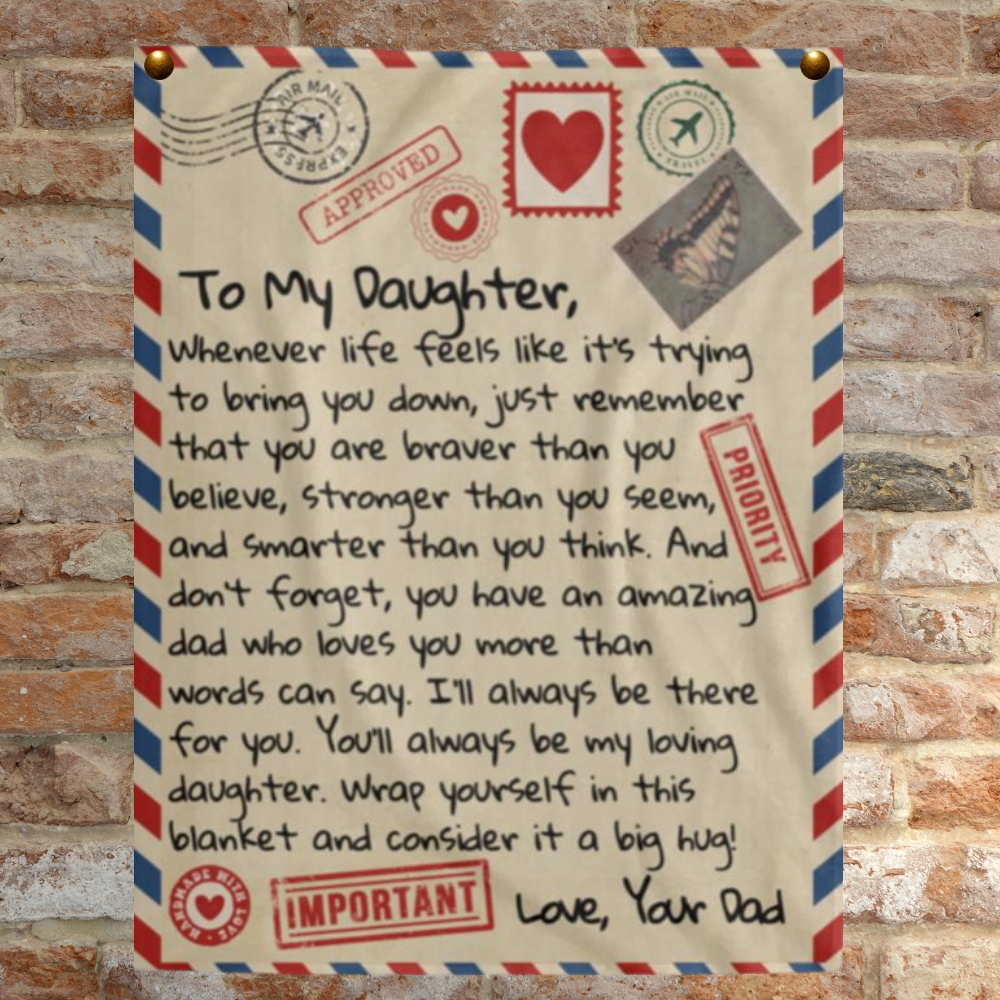 AIR MAIL
EXPRESS
APPROVED
AIR MAIL
TRAVEL
To My Daughter,
Whenever life feels like it's trying
to bring you down, just remember
that you are braver than you
believe, stronger than you seem,
and smarter than you think. And
don't forget, you have an amazing
dad who loves you more than
words can say. I'll always be there
for you. You'll always be my loving
daughter. Wrap yourself in this
blanket and consider it a big hug!
PRIORITY
HANDMADE WITH LOVE
IMPORTANT
Love, Your Dad